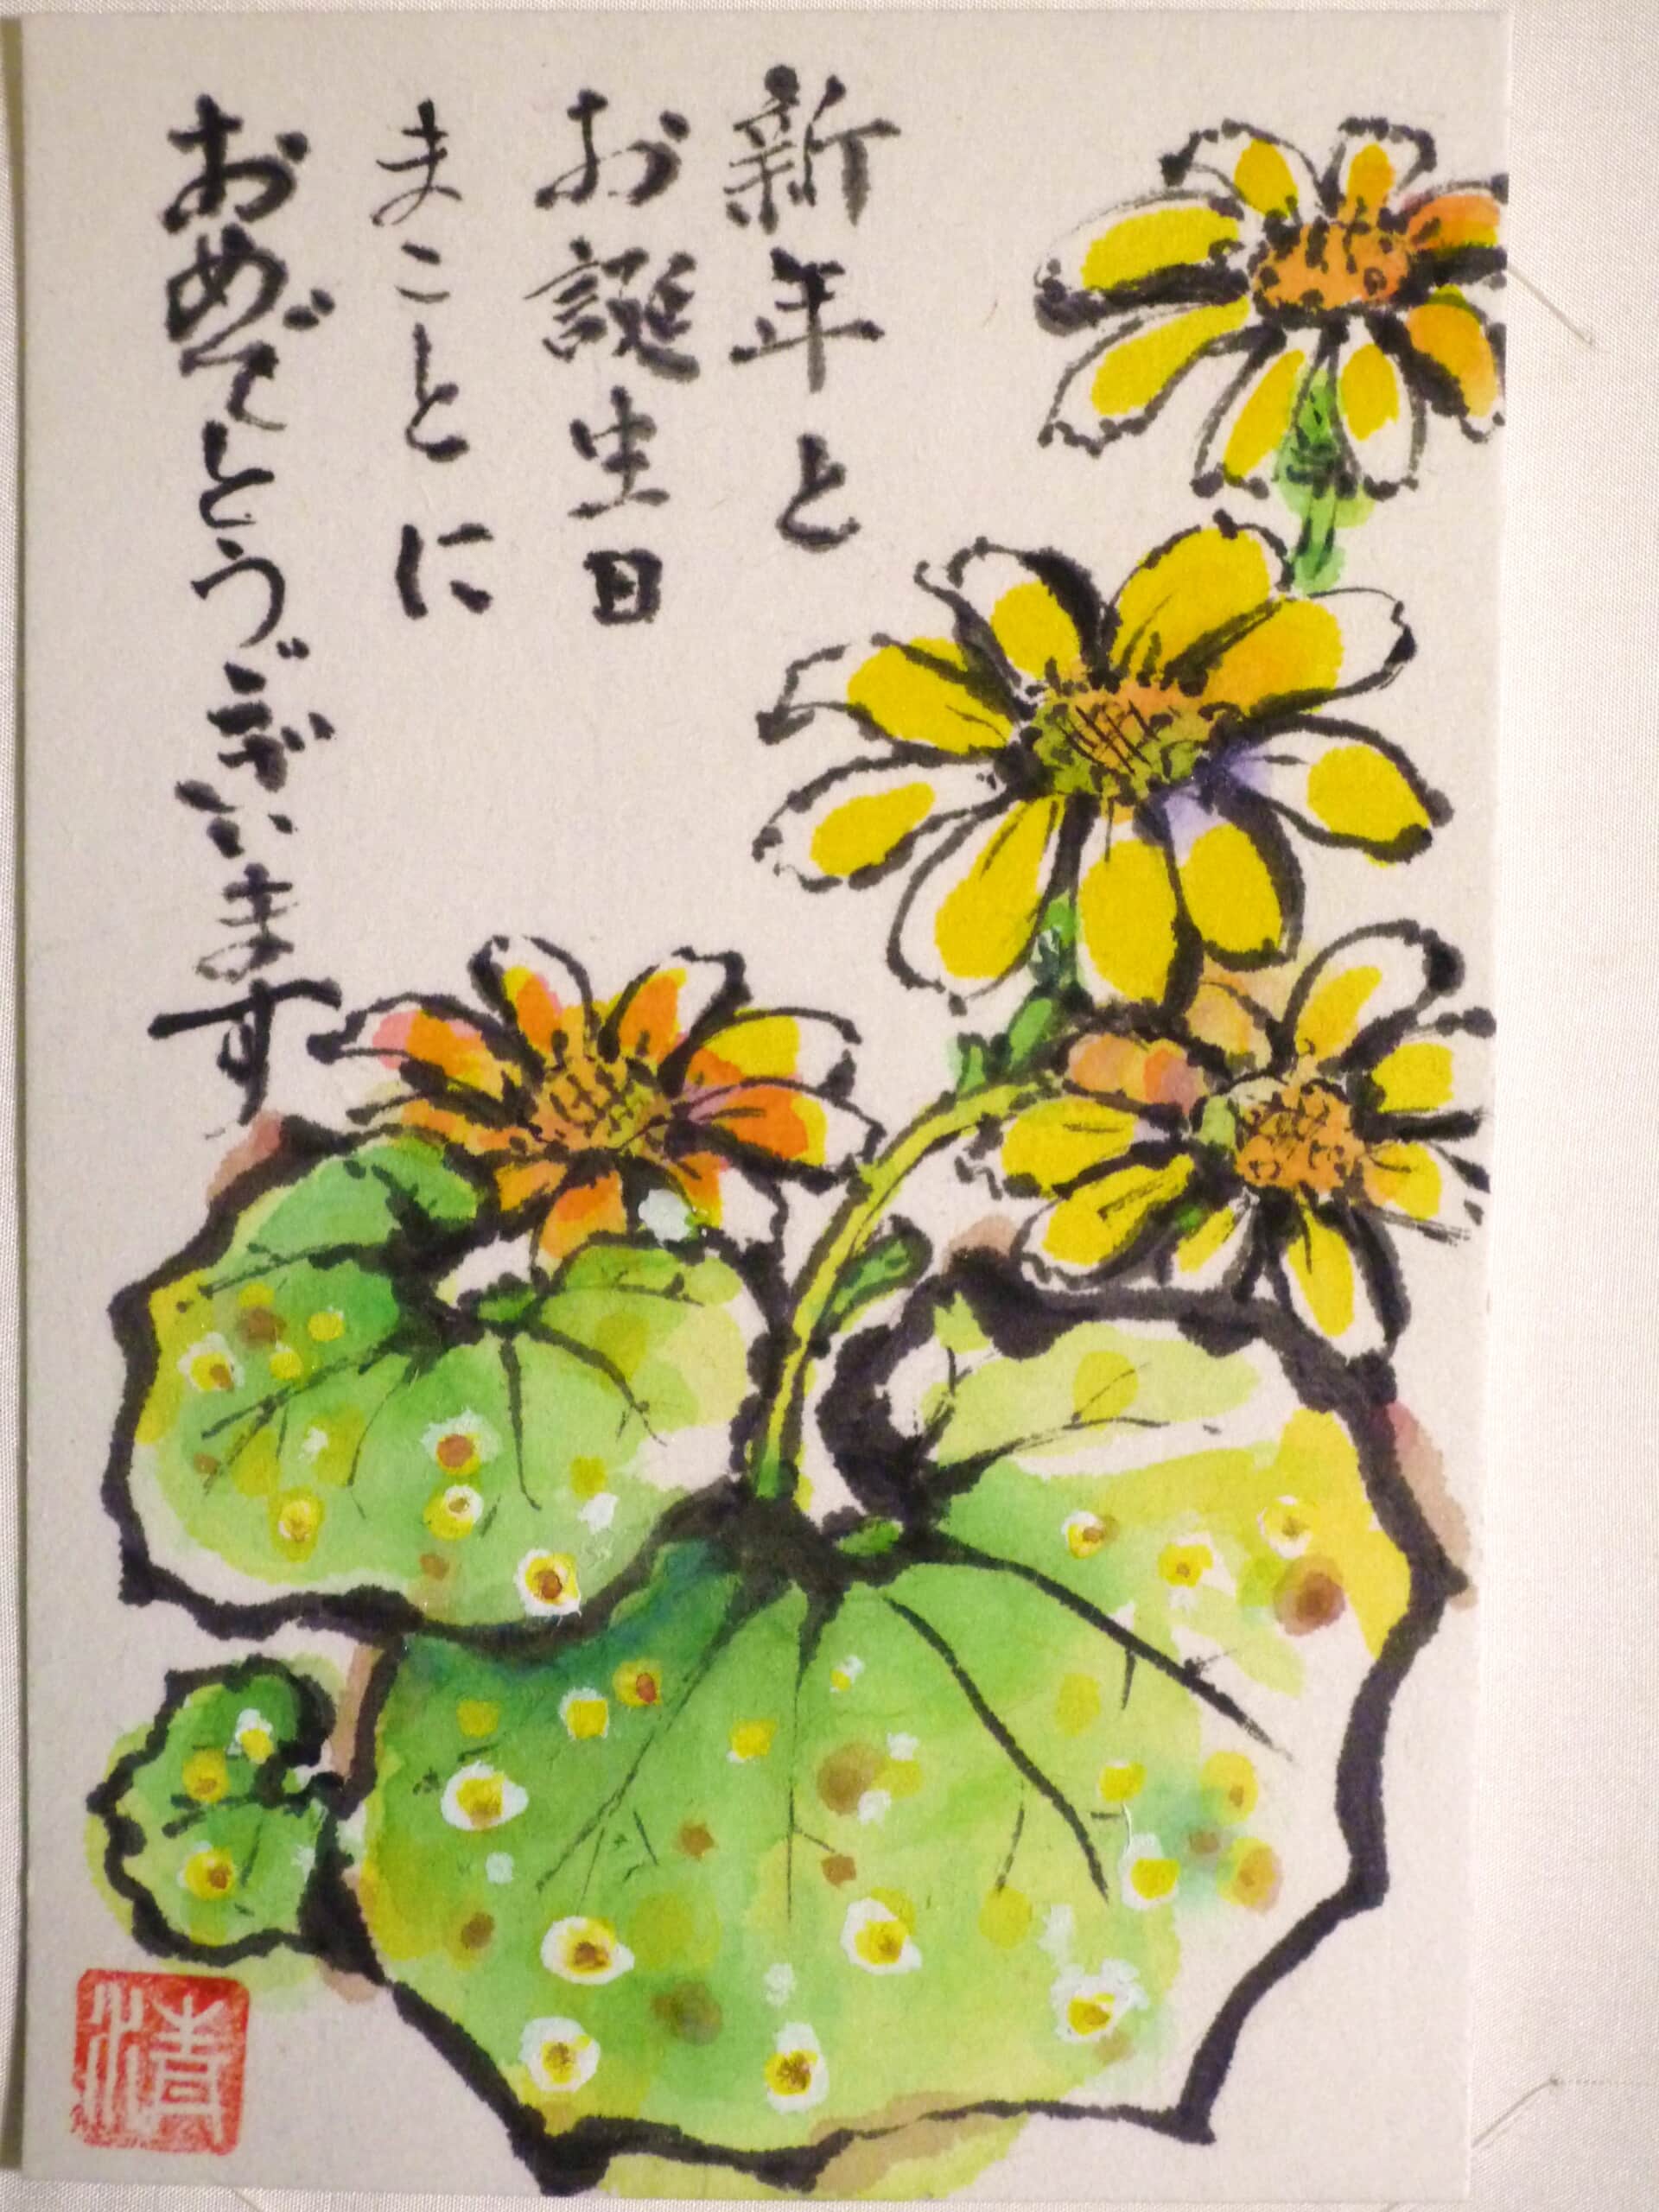 新年と
お誕生日
まことに
おめでとうございます
清